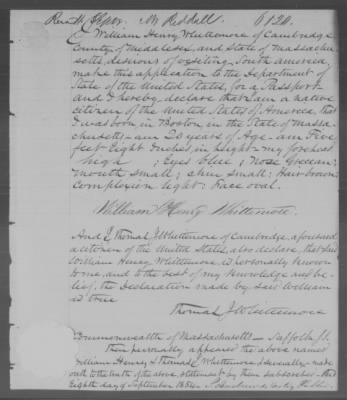 Wm Riddell. 6120.
I William Henry Whittemore of Cambridge
County of Middlesex and State of Massachu
setts, desirous of visiting South America,
make this application to the Department of
State of the United States, for a Passport
and I hereby declare that I am a native
citizen of the United States of America, that
I was born in Boston in the State of Massa
chusetts – am 20 years of Age – am Five
feet Eight Inches in height – my forehead
high ; Eyes blue ; Nose Grecian;
mouth small ; chin small ; Hair brown;
complexion light ; Face oval.
William Henry Whittemore.
And I Thomas J Whittemore of Cambridge, aforesaid
a citizen of the United States, also declare, that said
William Henry Whittemore is personally known
to me, and to the best of my knowledge and be
lief, the Declaration made by said William
is true
Thomas J Whittemore
Commonwealth of Massachusetts – Suffolk SS.
Then personally appeared the above named
William Henry & Thomas J Whittemore & severally made
oath to the truth of the above statement by them subscribed – this
Eighth day of September